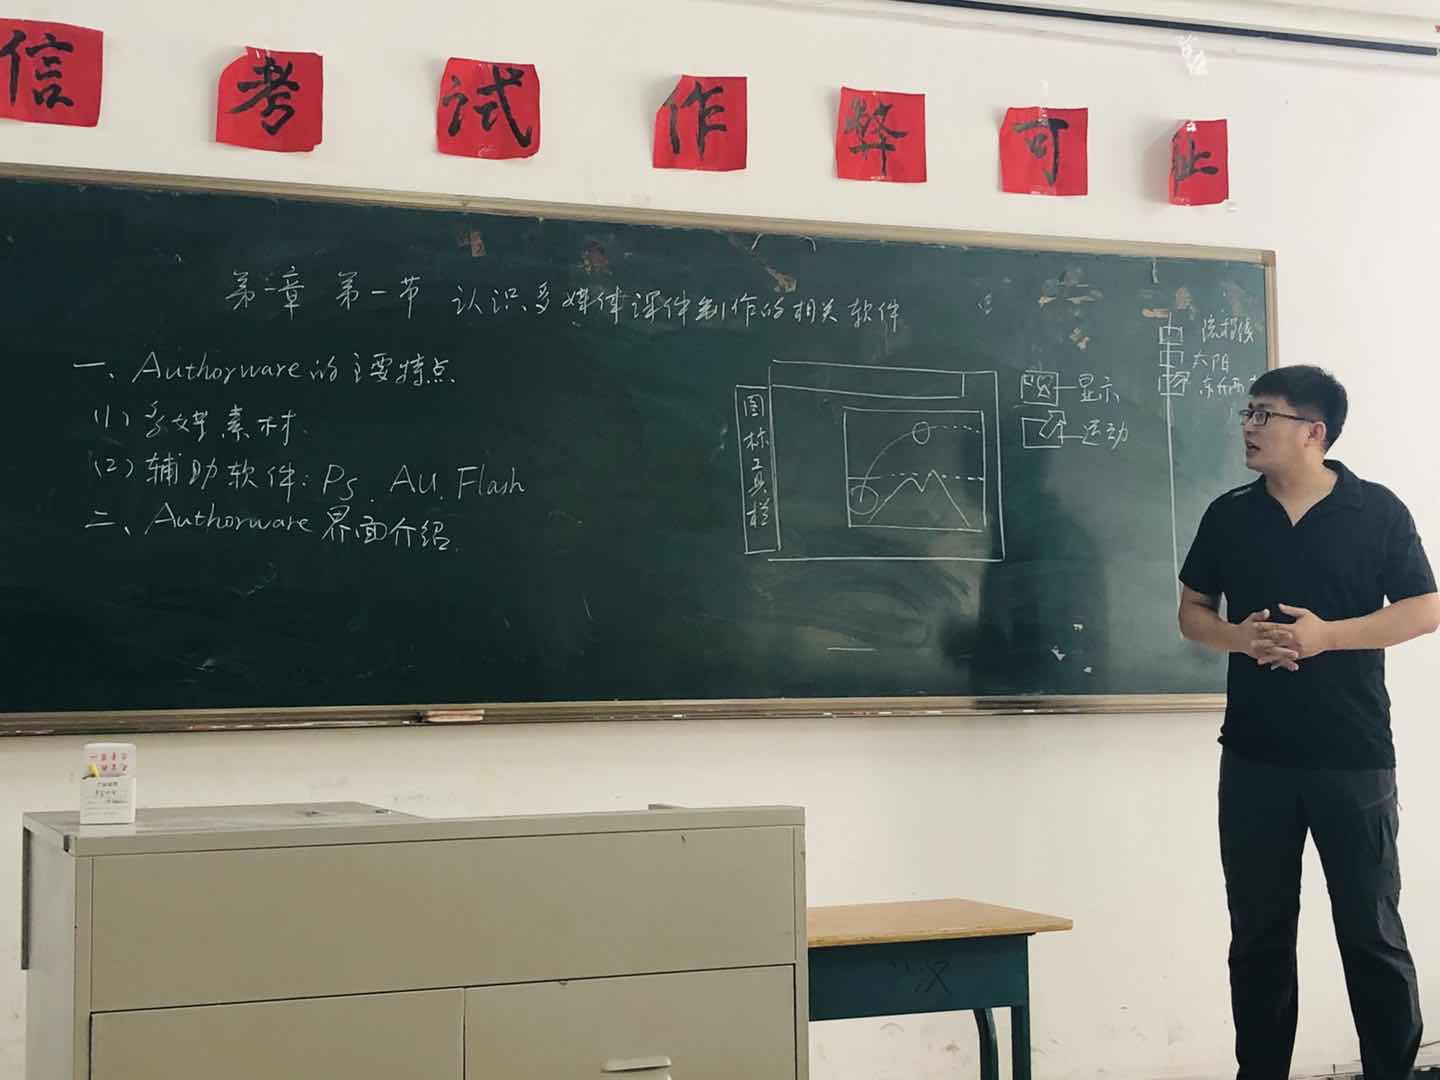 信考试作弊可耻
第一章 第一节 认识多媒体课件制作的相关软件
一、Authorware的主要特点
(1)多媒素材
(2)辅助软件：Ps、AU、Flash
二、Authorware界面介绍
图标工具栏
显示
运动
流程线
太阳